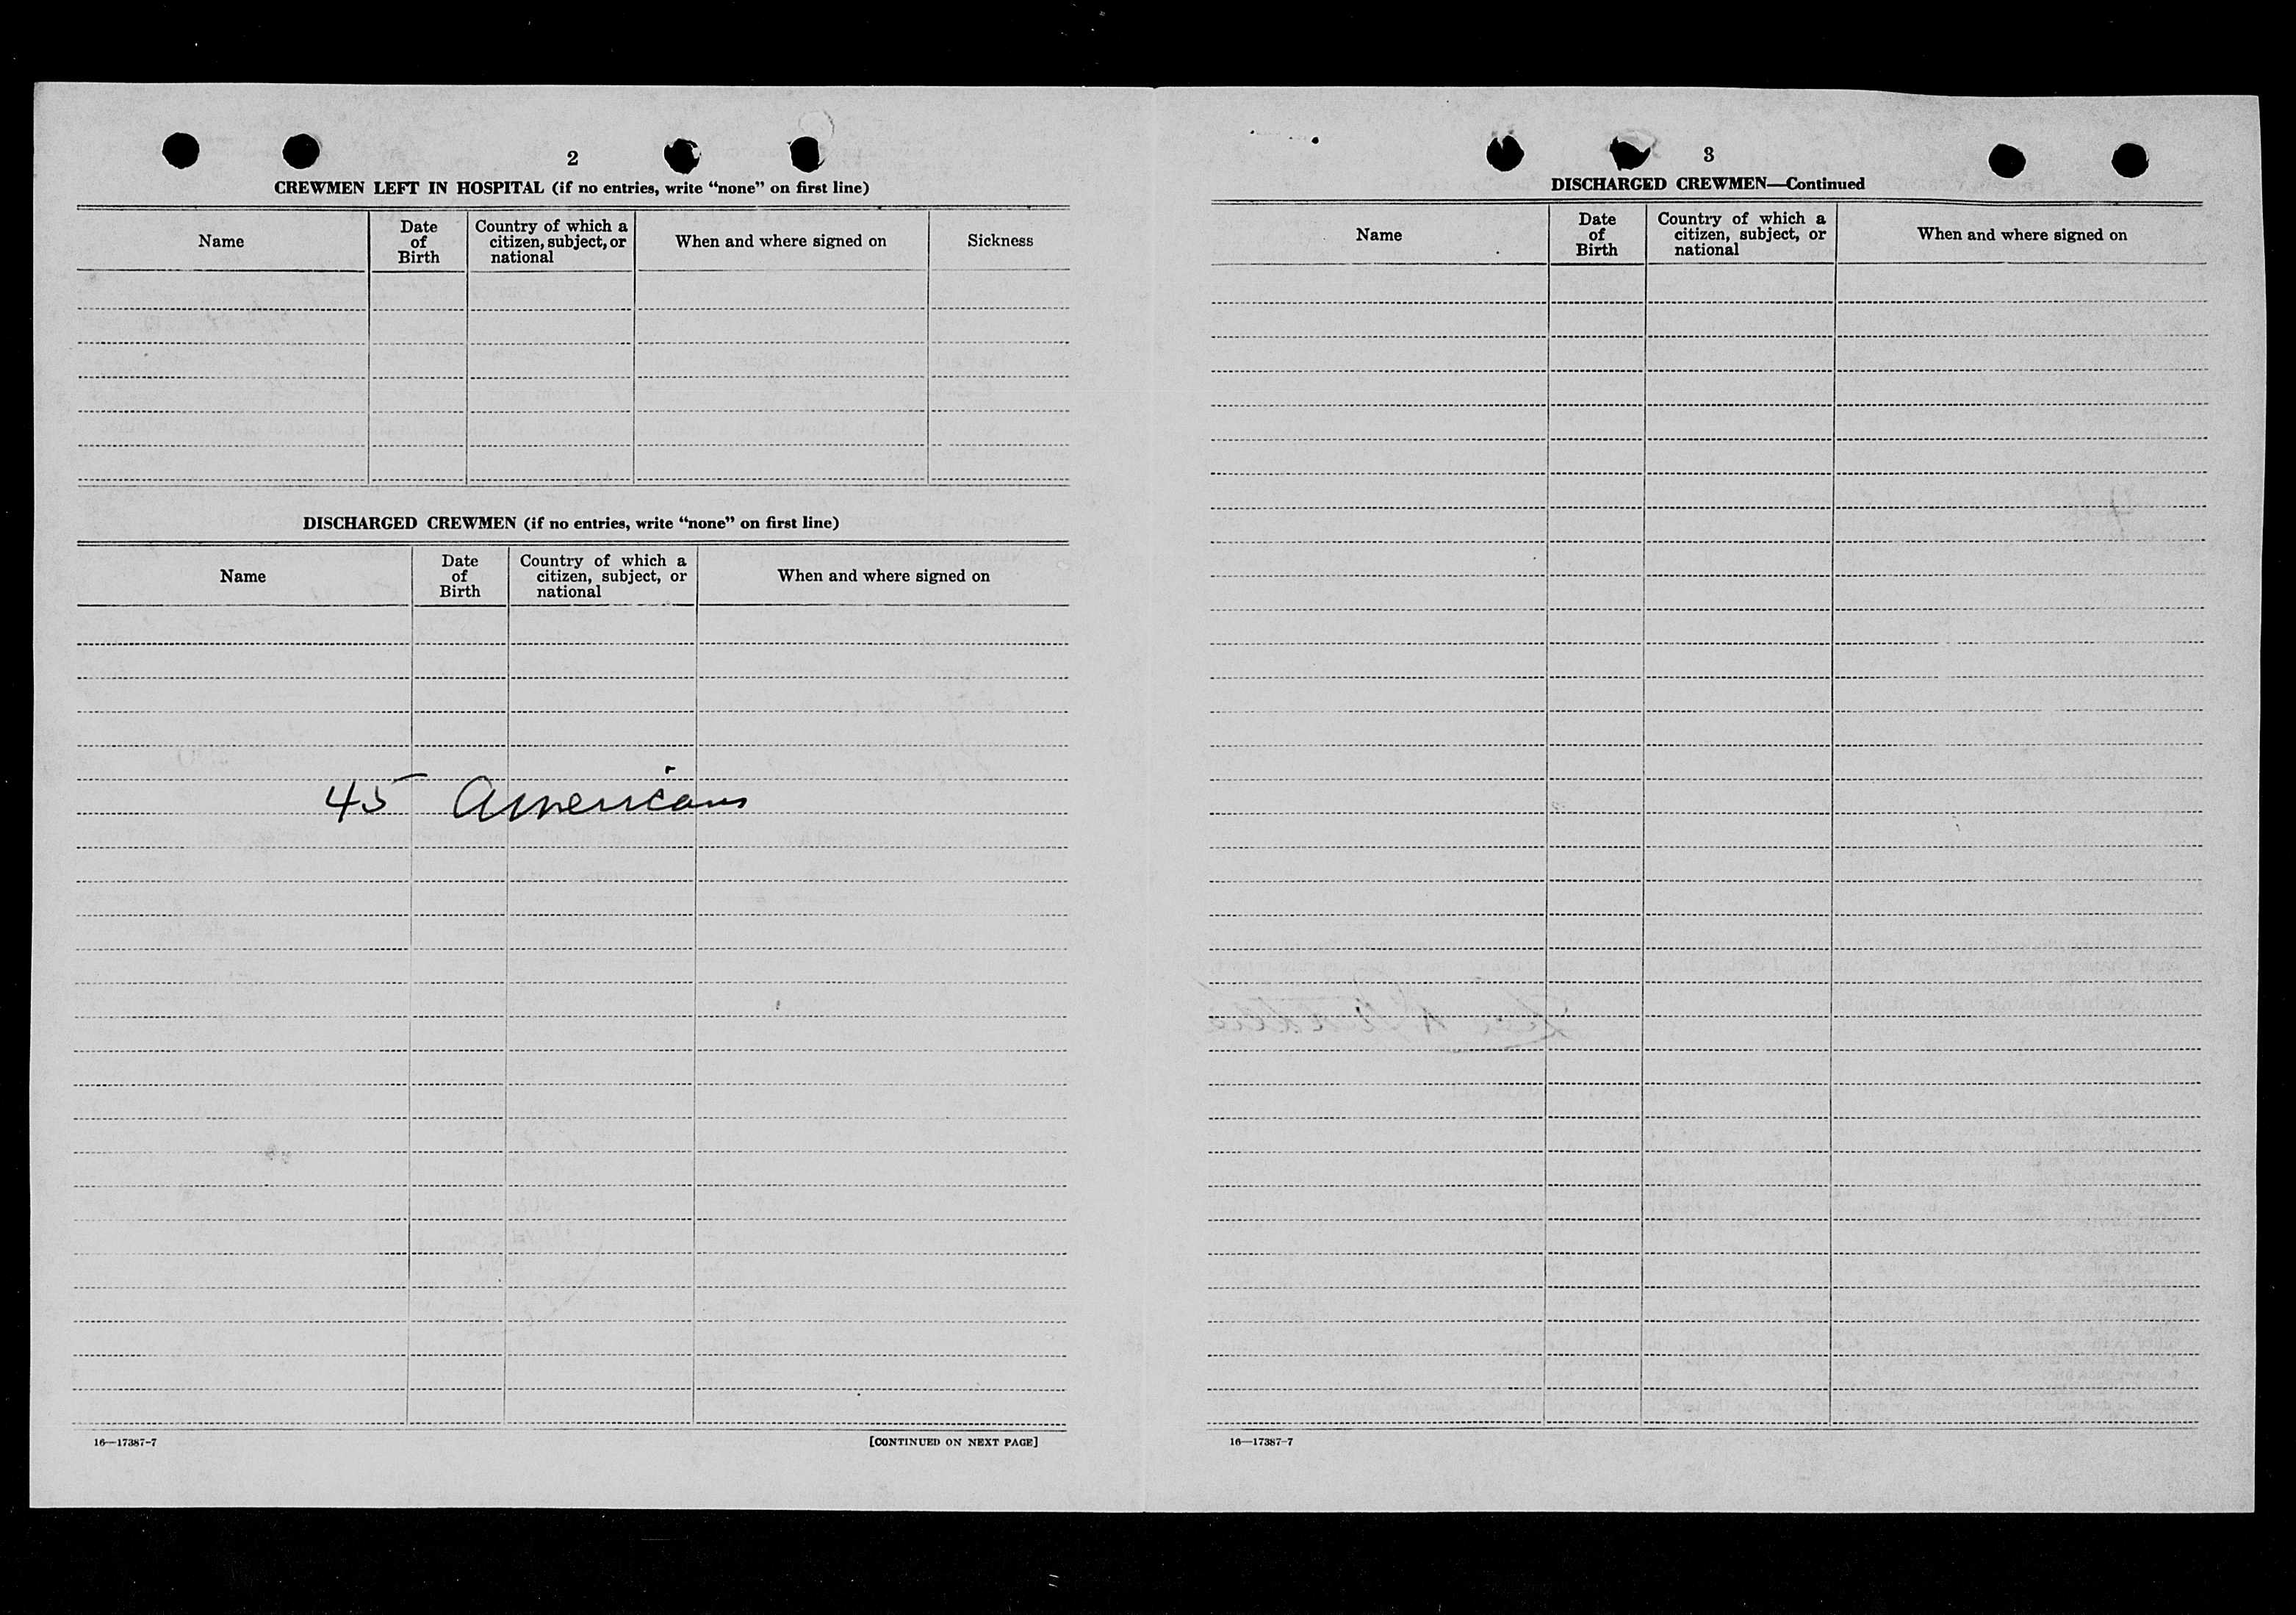 2
CREWMEN LEFT IN HOSPITAL (if no entries, write “none” on first line)
Name
Date of Birth
Country of which a citizen, subject, or national
When and where signed on
Sickness
DISCHARGED CREWMEN (if no entries, write “none” on first line)
Name
Date of Birth
Country of which a citizen, subject, or national
When and where signed on
45 Americans
16—17387-7
[CONTINUED ON NEXT PAGE]
3
DISCHARGED CREWMEN—Continued
Name
Date of Birth
Country of which a citizen, subject, or national
When and where signed on
16—17387-7